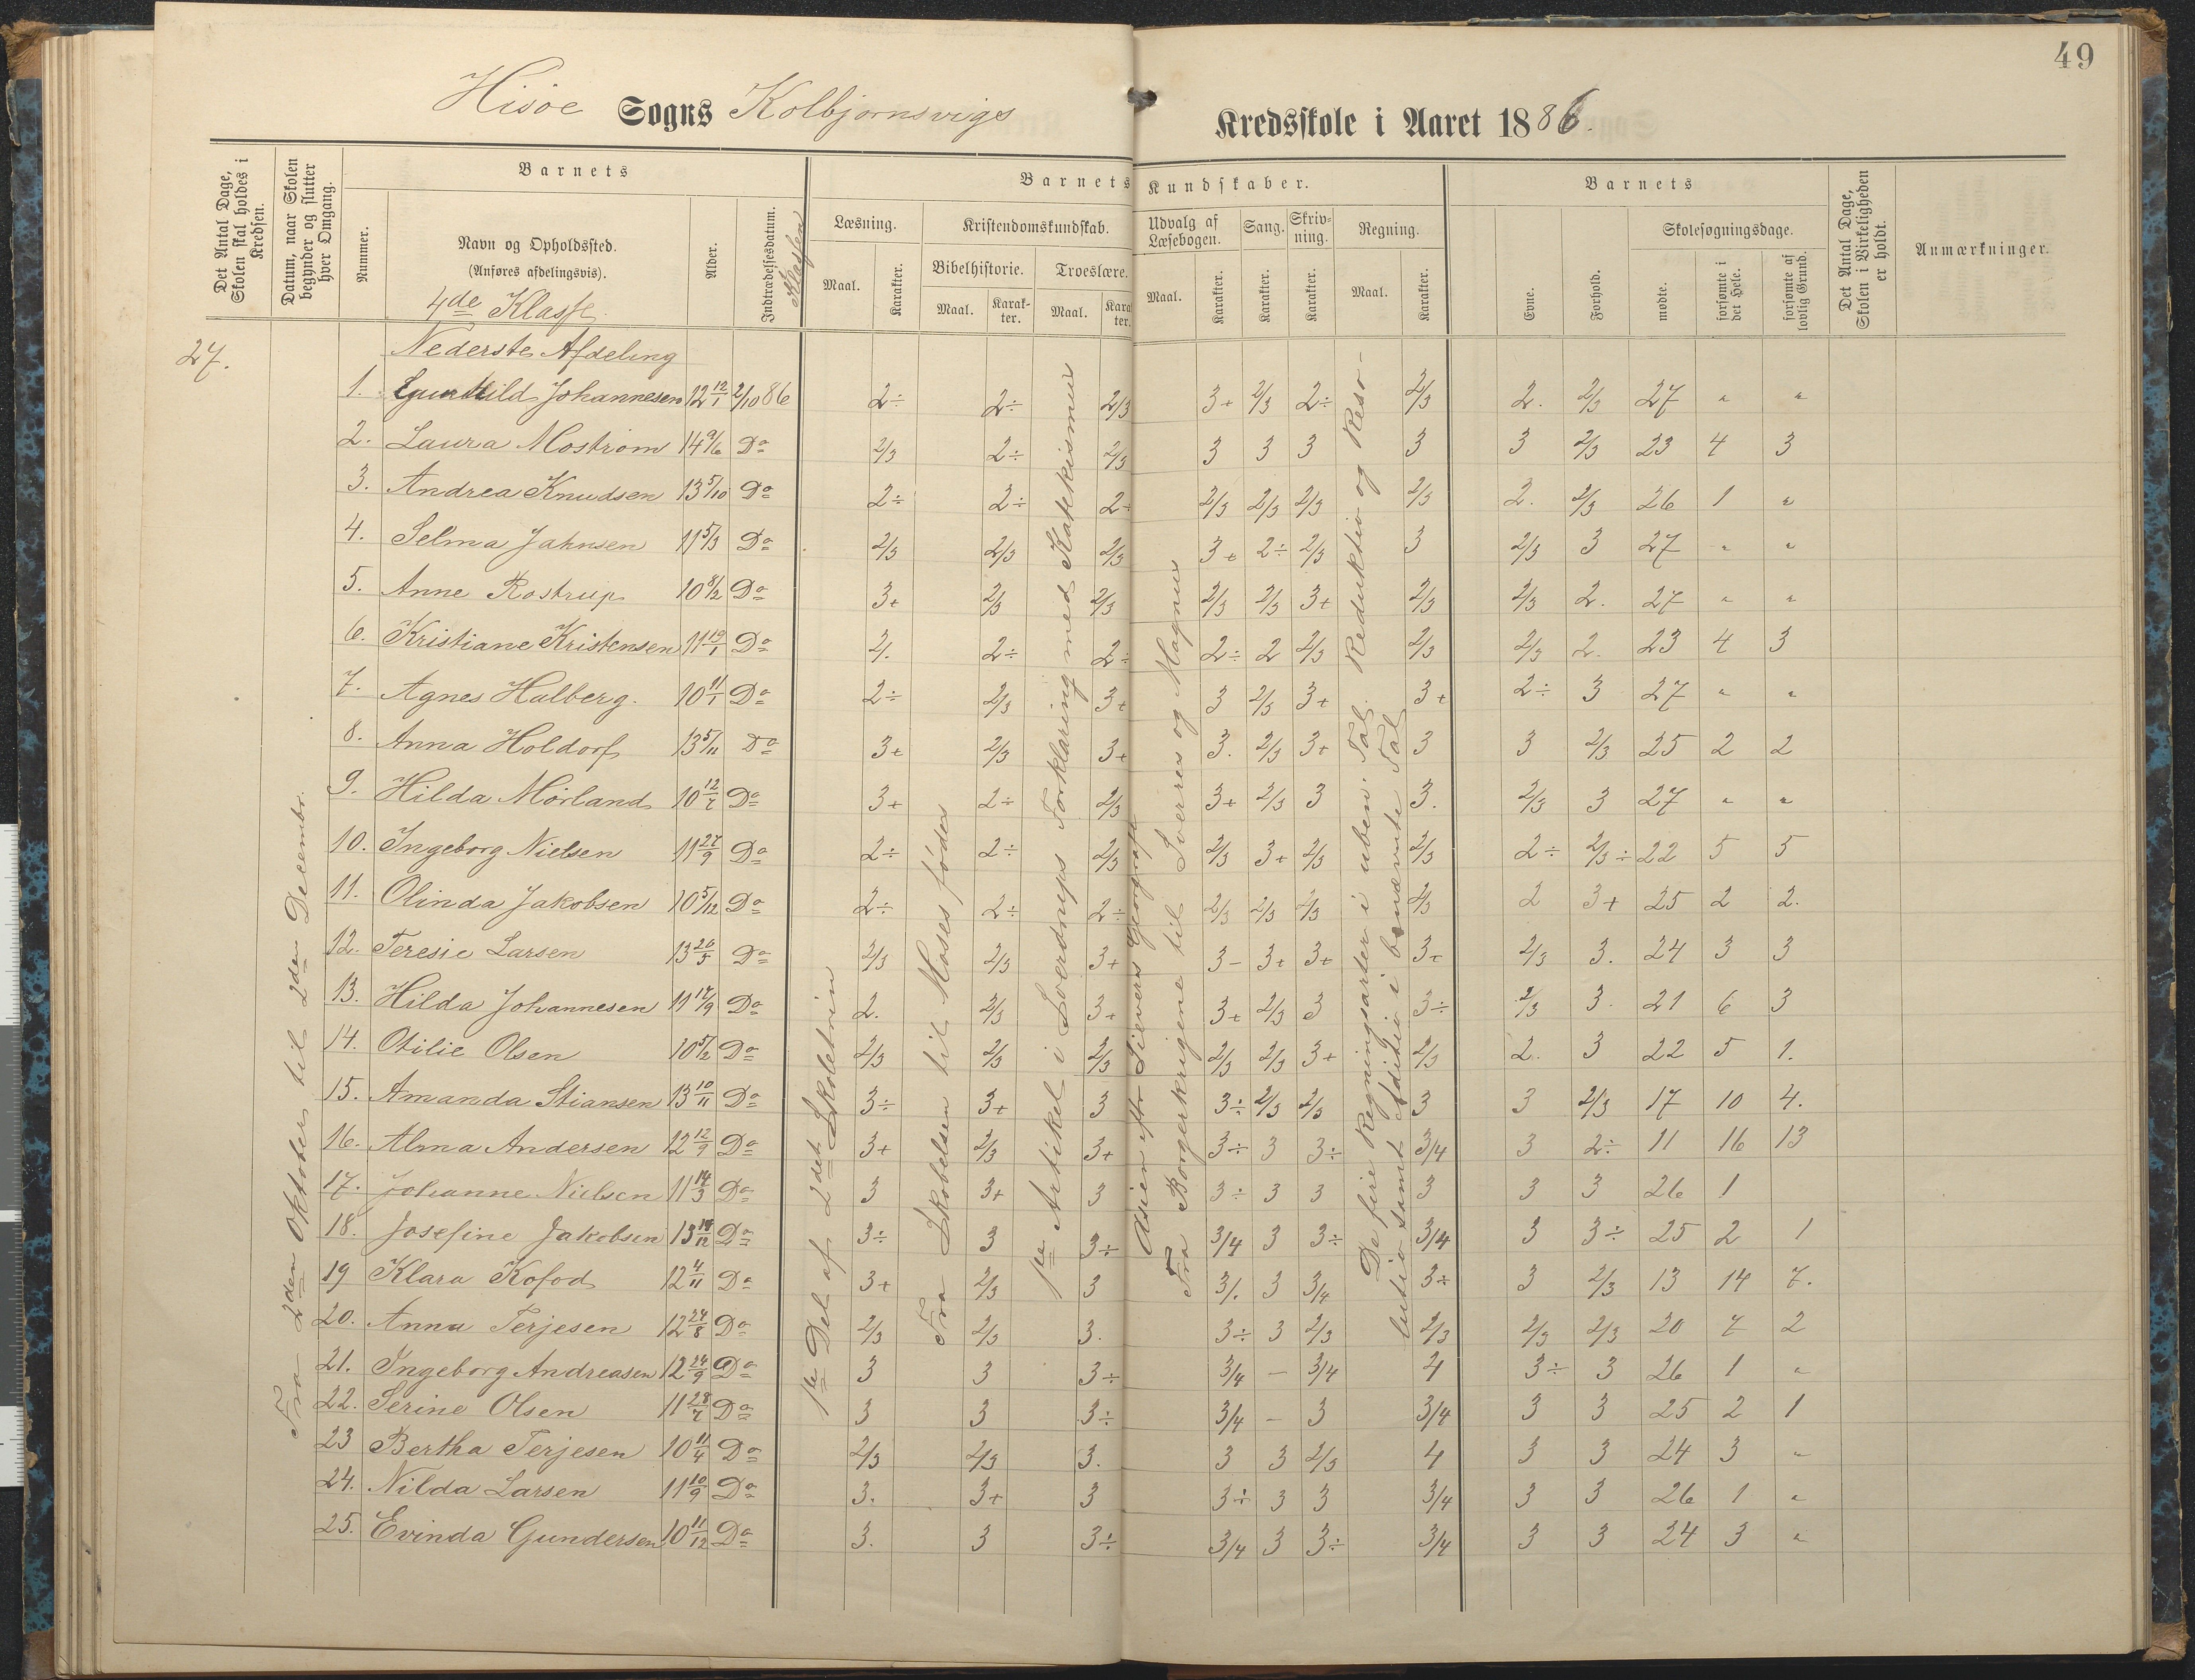 49
Hisöe Sogns Kolbjørnsvigs Kredsskole i Aaret 1886.
Det Antal Dage, Skolen skal holdes i Kredsen.
Datum, naar Skolen begynder og slutter hver Omgang.
Nummer.
Barnets
Navn og Opholdssted.
(Anføres afdelingsvis).
4de Klasse.
Alder.
Indtrædelsesdatum. i Klassen
Barnets Kundskaber.
Læsning.
Maal.
Karakter.
Kristendomskundskab.
Bibelhistorie.
Maal.
Karakter.
Troeslære.
Maal.
Karakter.
Udvalg af Læsebogen.
Maal.
Karakter.
Sang.
Karakter.
Skrivning.
Karakter.
Regning.
Maal.
Karakter.
Barnets
Evne.
Forhold.
Skolesøgningsdage.
mødte.
forsømte i det Hele.
forsømte af lovlig Grund.
Det Antal Dage, Skolen i Virkeligheden er holdt.
Anmærkninger.
27.
Nederste Afdeling
Fra 2den Oktober til 2den Decembr.
1te Del af 2det Skoletrin
Fra Skabelsen til Moses fødes
1te Artikel i Sverdrups Forklaring med Katekismus
Asien efter Sieverss Geografi
Fra Borgerkrigene til Sverres og Magnus
De fire Regningsarter i uben. Tal. Reduktio og Resolutio samt Aditio i benævnte Tal
1. Gunhild Johannesen 12 12/1 2/10 86 2÷ 2÷ 2/3 3+ 2/3 2÷ 2/3 2. 2/3 27 " "
2. Laura Moström 14 9/6 Do 2/3 2÷ 2/3 3 3 3 3 3 2/3 23 4 3
3. Andrea Knudsen 13 5/10 Do 2÷ 2÷ 2÷ 2/3 2/3 2/3 2/3 2. 2/3 26 1 "
4. Selma Jahnsen 11 5/3 Do 2/3 2/3 2/3 3+ 2÷ 2/3 3 2/3 3 27 " "
5. Anne Rostrup 10 8/2 Do 3+ 2/3 2/3 2/3 2/3 3+ 2/3 2/3 2. 27 " "
6. Kristiane Kristensen 11 19/1 Do 2. 2÷ 2÷ 2÷ 2 2/3 2/3 2/3 2. 23 4 3
7. Agnes Halberg. 10 11/1 Do 2÷ 2/3 3+ 3 2/3 3+ 3+ 2÷ 3 27 " "
8. Anna Holdorf 13 5/11 Do 3+ 2/3 3+ 3. 2/3 3+ 3 3 2/3 25 2 2
9. Hilda Mörland 10 12/7 Do 3+ 2÷ 2/3 3+ 2/3 3 3. 2/3 3 27 " "
10. Ingeborg Nielsen 11 27/9 Do 2÷ 2÷ 2/3 2/3 3+ 2/3 2/3 2÷ 2/3÷ 22 5 5
11. Olinda Jakobsen 10 5/12 Do 2÷ 2÷ 2÷ 2/3 2/3 2/3 2/3 2 3+ 25 2 2.
12. Teresie Larsen 13 26/5 Do 2/3 2/3 3+ 3- 3+ 3+ 3+ 2/3 3. 24 3 3
13. Hilda Johannesen 11 17/9 Do 2. 2/3 3+ 3+ 2/3 3 3÷ 2/3 3. 21 6 3
14. Otilie Olsen 10 5/2 Do 2/3 2/3 2/3 2/3 2/3 3+ 2/3 2. 3 22 5 1.
15. Amanda Stiansen 13 10/11 Do 3÷ 3+ 3 3÷ 2/3 2/3 3 3 2/3 17 10 4.
16. Alma Andersen 12 12/9 Do 3+ 2/3 3+ 3÷ 3 3÷ 3/4 3 2÷ 11 16 13
17. Johanne Nielsen 11 14/3 Do 3 3+ 3 3÷ 3 3 3 3 3 26 1
18. Josefine Jakobsen 13 /12 Do 3÷ 3 3÷ 3/4 3 3÷ 3/4 3 3÷ 25 2 1
19 Klara Kofod 12 4/11 Do 3+ 2/3 3 3/. 3 3/4 3÷ 3 2/3 13 14 7.
20. Anna Terjesen 12 24/8 Do 2/3 2/3 3. 3÷ 3 2/3 2/3 2/3 2/3 20 7 2
21. Ingeborg Andreasen 12 24/9 Do 3 3 3÷ 3/4 - 3/4 4 3÷ 3 26 1 "
22. Serine Olsen 11 28/7 Do 3 3 3÷ 3/4 - 3 3/4 3 3 25 2 1
23 Bertha Terjesen 10 11/4 Do 2/3 2/3 3. 3 3 2/3 4 3 3 24 3 "
24. Nilda Larsen 11 10/9 Do 3. 3+ 3 3÷ 3 3 3/4 3 3 26 1 "
25. Evinda Gundersen 10 11/12 Do 3. 3 3÷ 3/4 3 3÷ 3/4 3 3 24 3 "